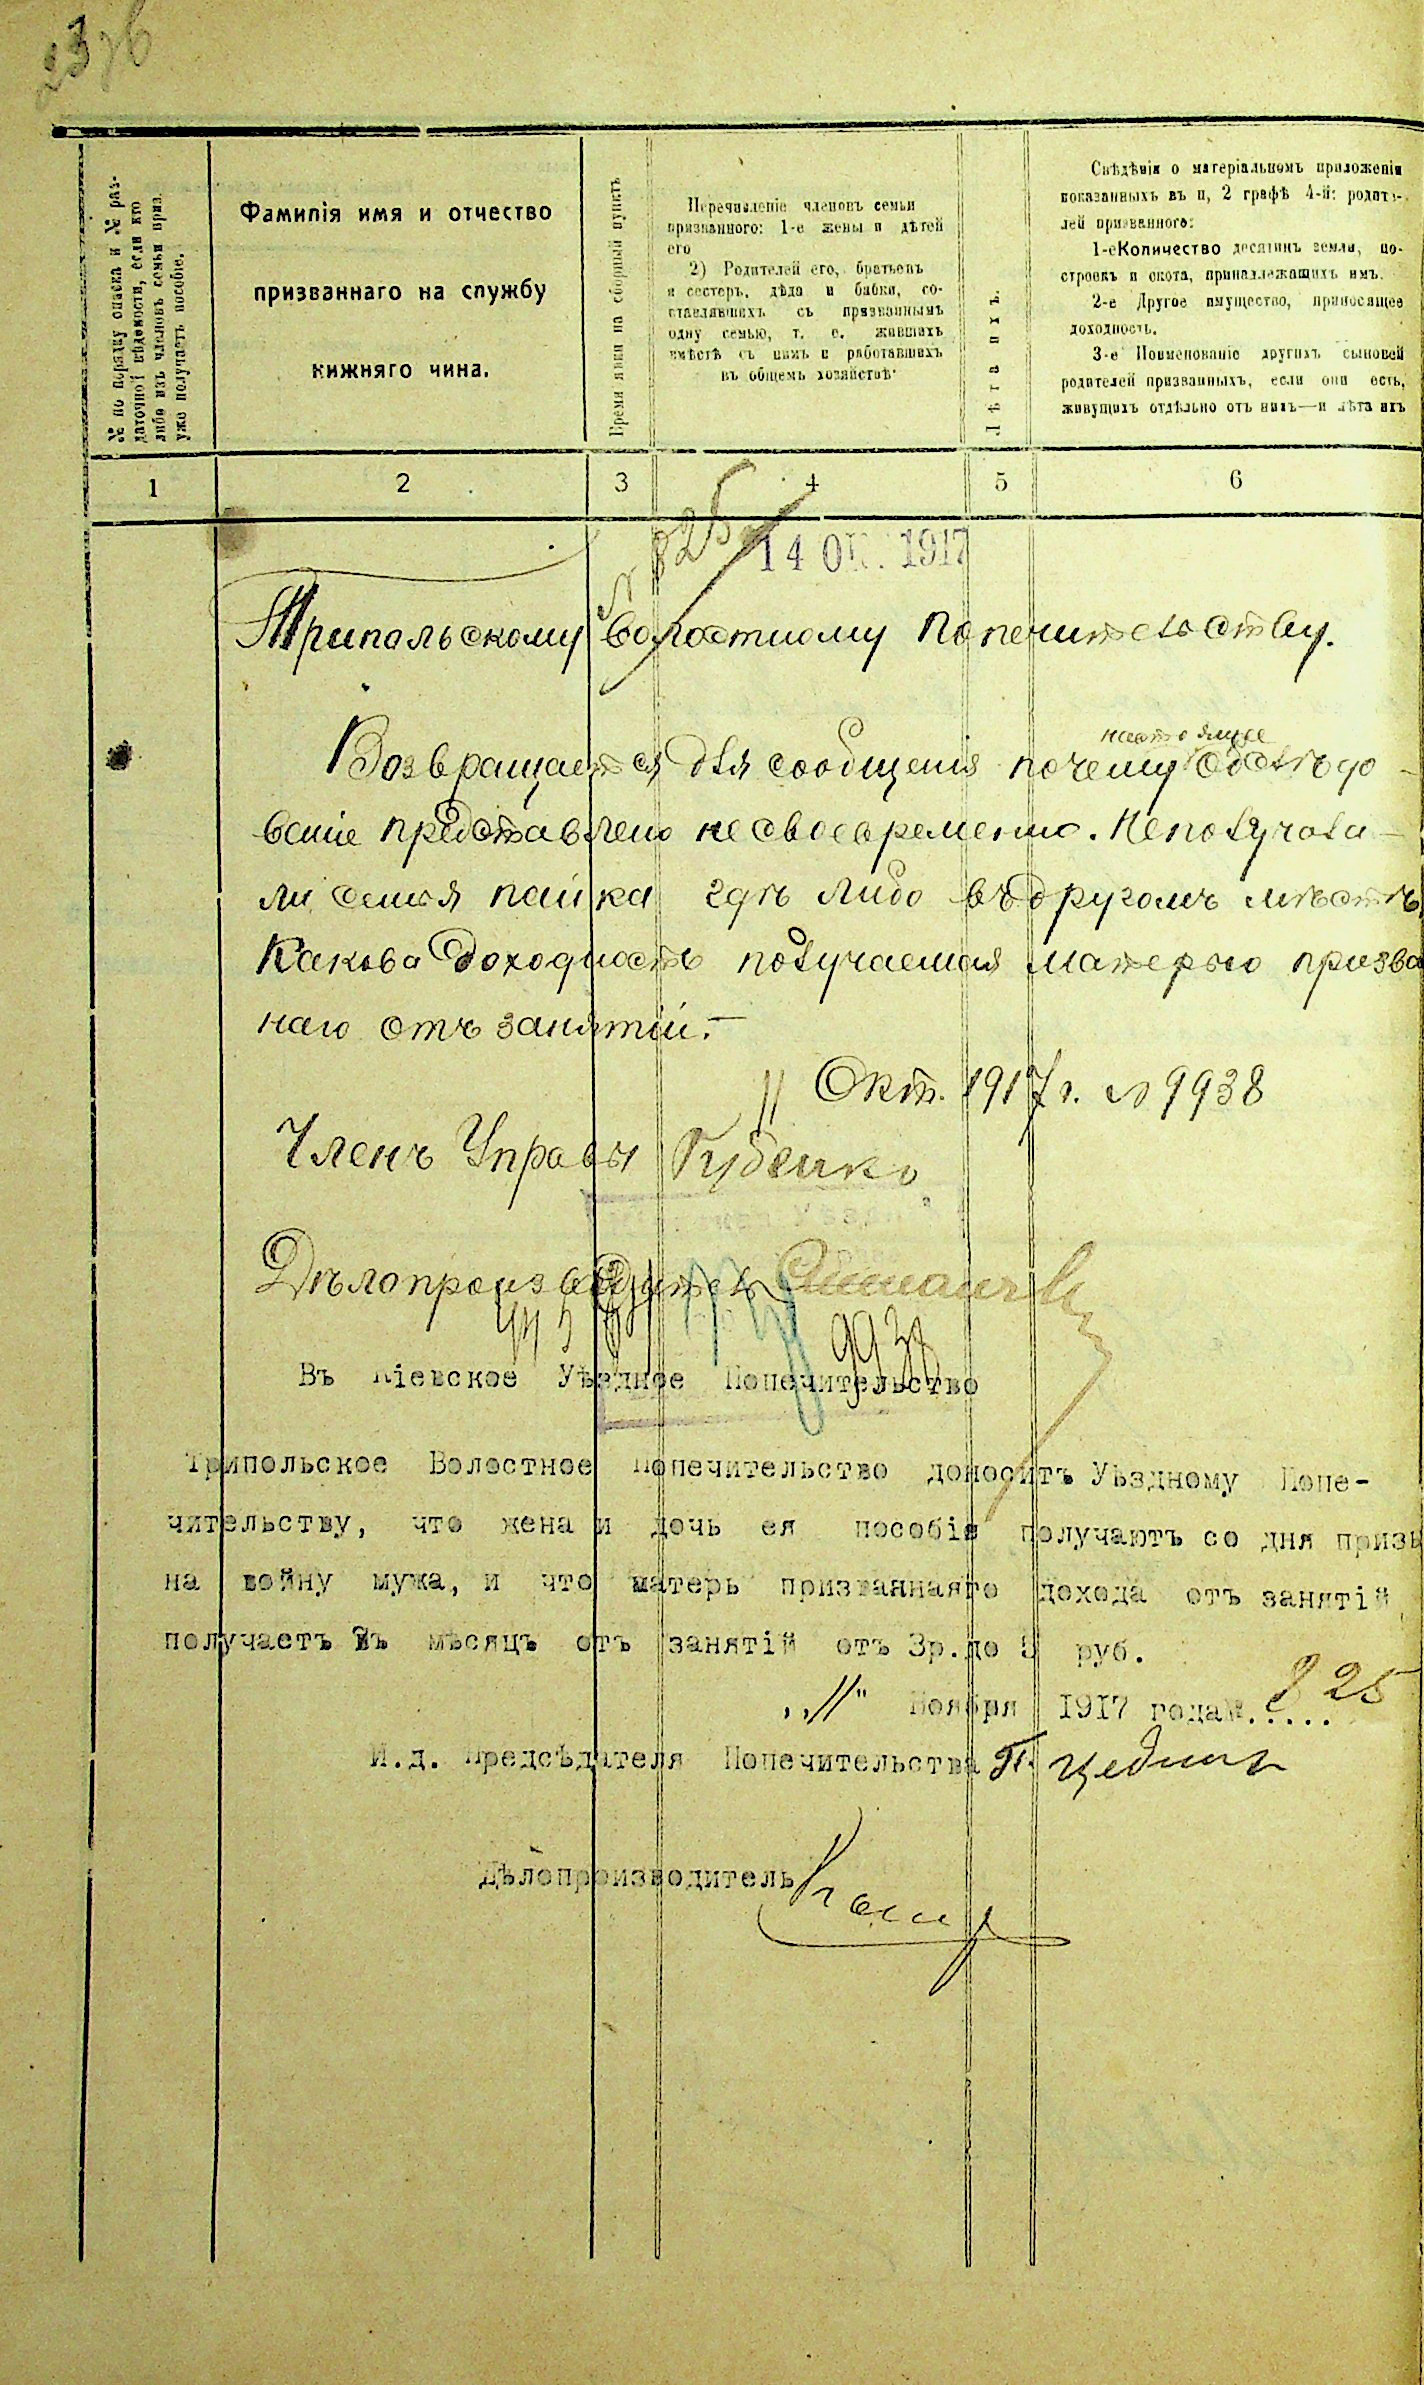 237б
№ по порядку списка и № раз-
даточной вѣдомости, если кто
либо изъ членовъ семьи приз.
уже получаетъ пособіе.
Фамилія имя и отчество
призваннаго на службу
нижняго чина.
Время явки на сборный пунктъ
Перечисленіе членовъ семьи
призванного: 1-е жены и дѣтей
его
2) Родителей его, братьевъ
и сестеръ, дѣда и бабки, со-
ставлявшихъ съ призваннымъ
одну семью, т. е. жившихъ
вмѣстѣ съ нимъ и работавшихъ
въ общемъ хозяйствѣ.
Лѣта ихъ.
Свѣдѣнія о матеріальномъ приложеніи
показанныхъ въ п, 2 графѣ 4-й: родите-
лей призванного:
1-е Количество десятинъ земли, по-
строекъ и скота, принадлежащихъ имъ.
2-е Другое имущество, приносящее
доходность.
3-е Поименованіе другихъ сыновей
родителей призванныхъ, если они есть,
живущихъ отдѣльно отъ нихъ—и лѣта ихъ
1 2 3 4 5 6
№ 825
14 ОК. 1917
Трипольскому волостному Попечительству.
настоящее
Возвращается для сообщенія почему обслѣдо-
ваніе представлено несвоевременно. Не получала-
ли семья пайка гдѣ либо въ другомъ мѣстѣ,
Какова доходность получаемая матерью призва
наго отъ занятій.—
" Окт. 1917 г. № 9938
Членъ Управы Губенко
Дѣлопроизводитель
9938
Въ Кіевское Уѣздное Попечительство
Трипольское Волостное Попечительство доноситъ Уѣздному Попе-
чительству, что жена и дочь ея пособіе получаютъ со дня призы
на войну мужа, и что матерь призваннаяго дохода отъ занятій
получаетъ въ мѣсяцъ отъ занятій отъ 3р.до 5 руб.
„11" Ноября 1917 года№..... 825
И.д. Предсѣдателя Попечительства
Дѣлопроизводитель